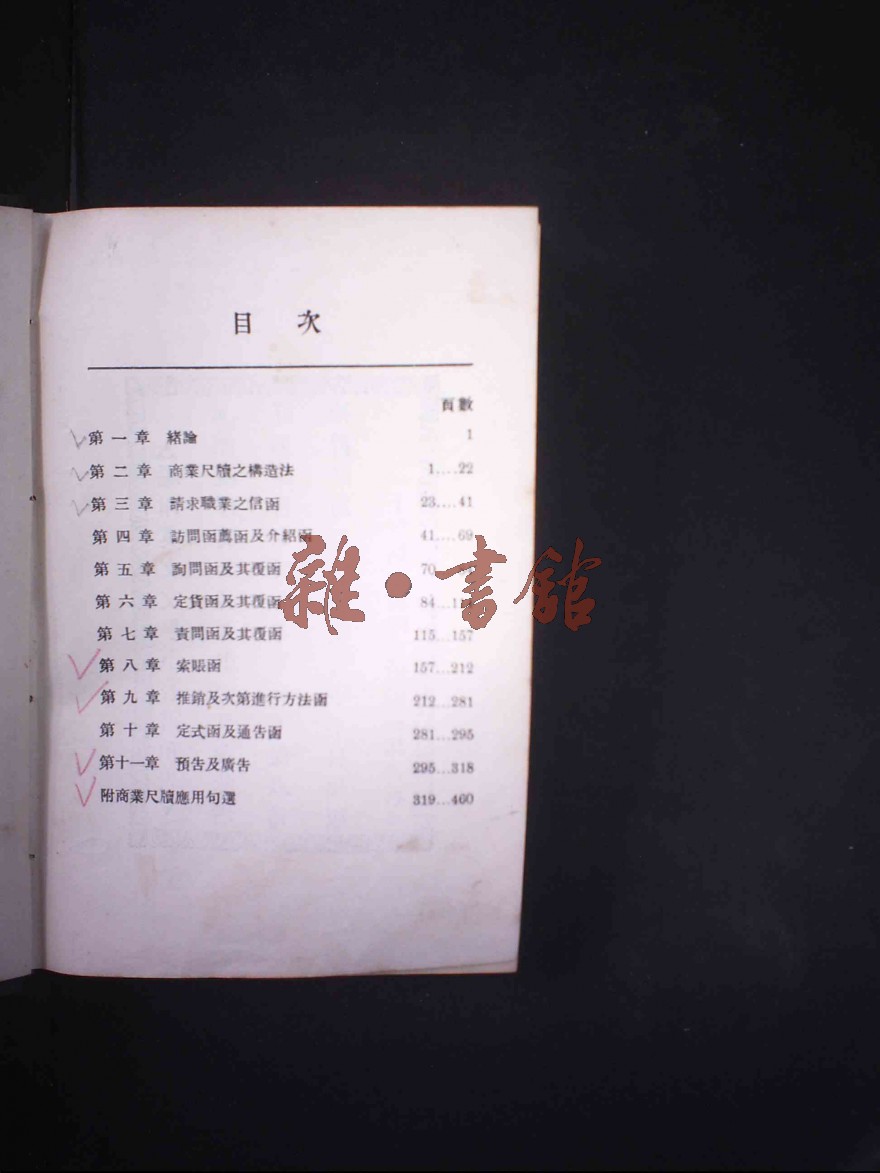 目 次
頁數
第一章 緒論 1
第二章 商業尺牘之構造法 1....22
第三章 請求職業之信函 23....41
第四章 訪問函薦函及介紹函 41....69
第五章 詢問函及其覆函 70
第六章 定貨函及其覆函 84...
第七章 責問函及其覆函 115...157
第八章 索賬函 157...212
第九章 推銷及次第進行方法函 212...281
第十章 定式函及通告函 281...295
第十一章 預告及廣告 295...318
附商業尺牘應用句選 319...460
雜·書館